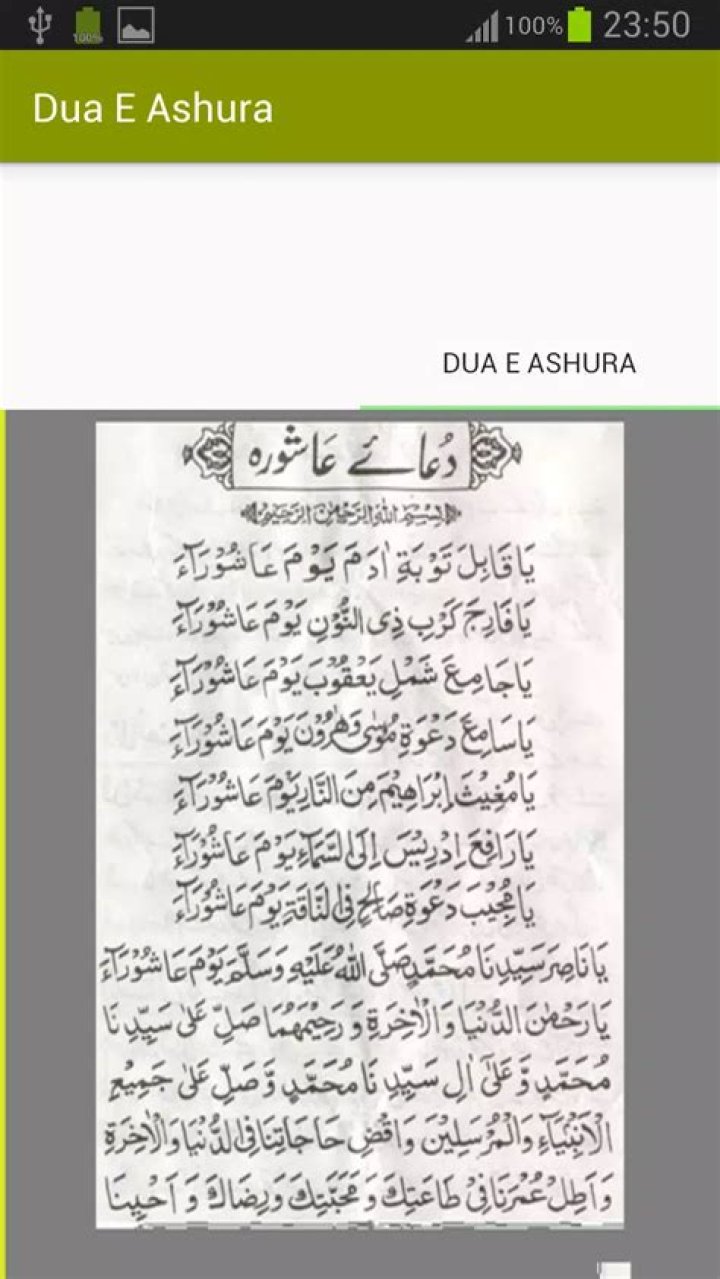 100%
100% 23:50
Dua E Ashura
DUA E ASHURA
دُعائے عَاشُورہ
بِسْمِ اللهِ الرَّحْمٰنِ الرَّحِيْمِ
يَا قَابِلَ تَوْبَةِ اٰدَمَ يَوْمَ عَاشُوْرَآءَ
يَا فَارِجَ كَرْبِ ذِى النُّوْنِ يَوْمَ عَاشُوْرَآءَ
يَا جَامِعَ شَمْلِ يَعْقُوْبَ يَوْمَ عَاشُوْرَآءَ
يَا سَامِعَ دَعْوَةِ مُوْسٰى وَهٰرُوْنَ يَوْمَ عَاشُوْرَآءَ
يَا مُغِيْثَ اِبْرَاهِيْمَ مِنَ النَّارِ يَوْمَ عَاشُوْرَآءَ
يَا رَافِعَ اِدْرِيْسَ اِلَى السَّمَآءِ يَوْمَ عَاشُوْرَآءَ
يَا مُجِيْبَ دَعْوَةِ صَالِحٍ فِى النَّاقَةِ يَوْمَ عَاشُوْرَآءَ
يَا نَاصِرَ سَيِّدِنَا مُحَمَّدٍ صَلَّى اللهُ عَلَيْهِ وَسَلَّمَ يَوْمَ عَاشُوْرَآءَ
يَا رَحْمٰنَ الدُّنْيَا وَالْاٰخِرَةِ وَ رَحِيْمَهُمَا صَلِّ عَلٰى سَيِّدِنَا
مُحَمَّدٍ وَّ عَلٰٓى اٰلِ سَيِّدِنَا مُحَمَّدٍ وَّصَلِّ عَلٰى جَمِيْعِ
الْاَنْبِيَآءِ وَالْمُرْسَلِيْنَ وَاقْضِ حَاجَاتِنَا فِى الدُّنْيَا وَالْاٰخِرَةِ
وَ اَطِلْ عُمْرَنَا فِىْ طَاعَتِكَ وَ مَحَبَّتِكَ وَ رِضَاكَ وَ اَحْيِنَا